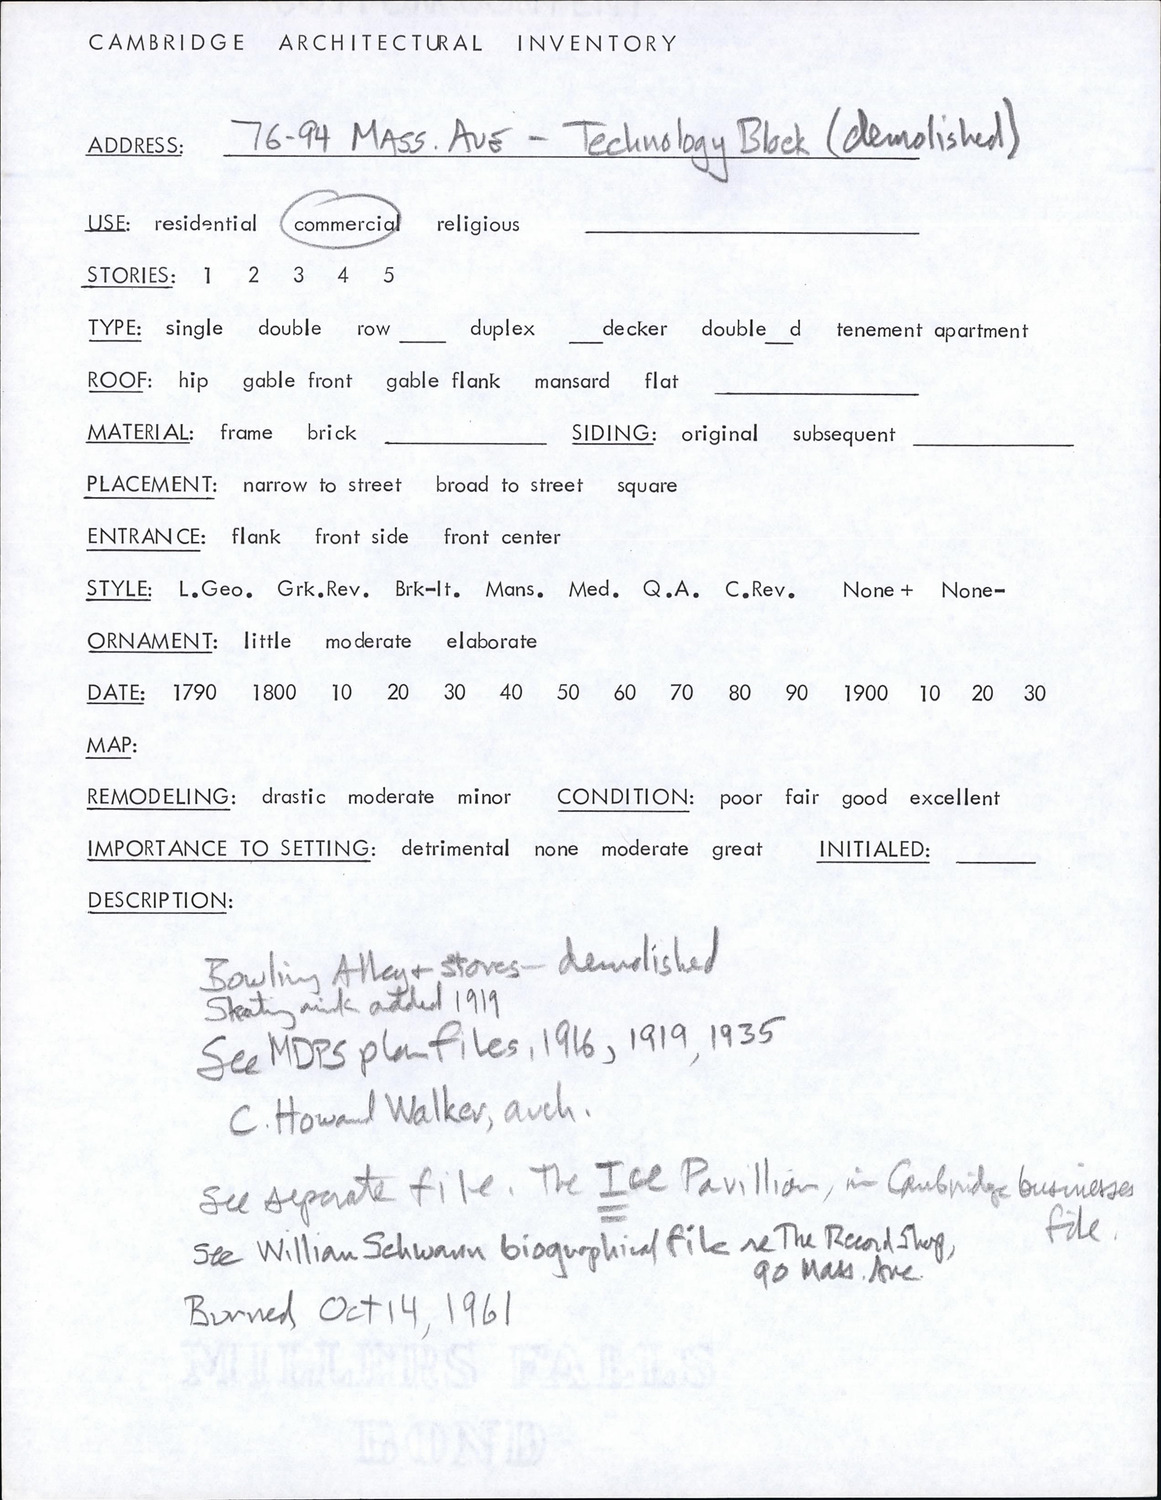 CAMBRIDGE ARCHITECTURAL INVENTORY
ADDRESS: 76-94 MASS. AVE - Technology Block (demolished)
USE: residential commercial religious
STORIES: 1 2 3 4 5
TYPE: single double row ____ duplex ___decker double__d tenement apartment
ROOF: hip gable front gable flank mansard flat
MATERIAL: frame brick SIDING: original subsequent
PLACEMENT: narrow to street broad to street square
ENTRANCE: flank front side front center
STYLE: L.Geo. Grk.Rev. Brk-It. Mans. Med. Q.A. C.Rev. None+ None-
ORNAMENT: little moderate elaborate
DATE: 1790 1800 10 20 30 40 50 60 70 80 90 1900 10 20 30
MAP:
REMODELING: drastic moderate minor CONDITION: poor fair good excellent
IMPORTANCE TO SETTING: detrimental none moderate great INITIALED:
DESCRIPTION:
Bowling Alley + stores - demolished
Skating rink added 1919
See MDPS plan files, 1916, 1919, 1935
C. Howard Walker, arch.
See separate file. The Ice Pavillion, in Cambridge businesses
file.
See William Schwann biographical file re The Record Shop,
90 Mass. Ave.
Burned Oct 14, 1961
MILLERS FALLS
BOND